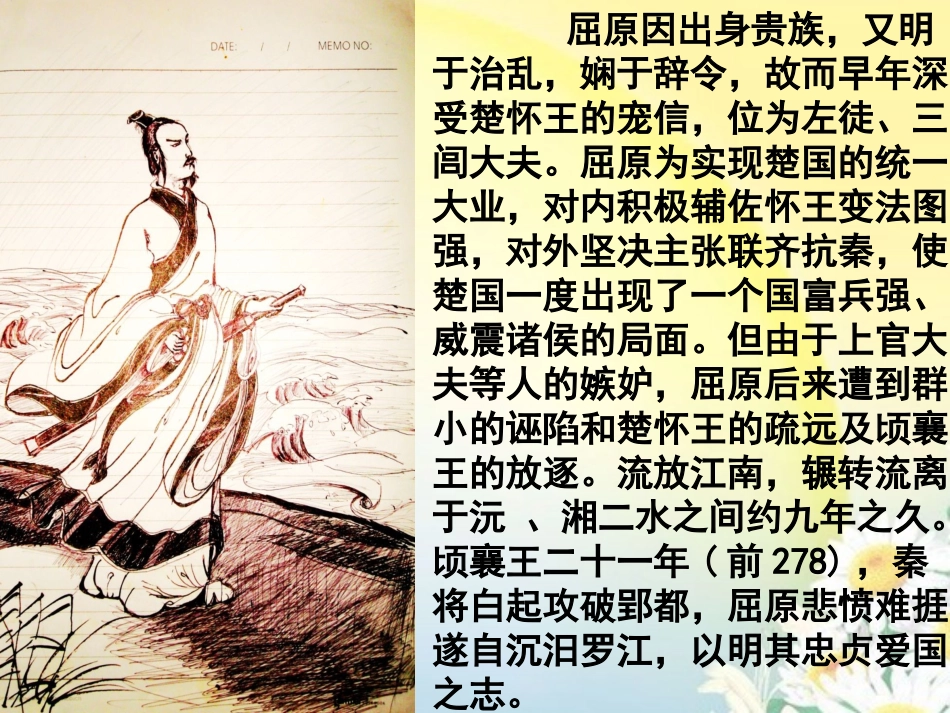 DATE: / / MEMO NO:
屈原因出身贵族，又明
于治乱，娴于辞令，故而早年深
受楚怀王的宠信，位为左徒、三
闾大夫。屈原为实现楚国的统一
大业，对内积极辅佐怀王变法图
强，对外坚决主张联齐抗秦，使
楚国一度出现了一个国富兵强、
威震诸侯的局面。但由于上官大
夫等人的嫉妒，屈原后来遭到群
小的诬陷和楚怀王的疏远及顷襄
王的放逐。流放江南，辗转流离
于沅 、湘二水之间约九年之久。
顷襄王二十一年（前278），秦
将白起攻破郢都，屈原悲愤难捱
遂自沉汨罗江，以明其忠贞爱国
之志。